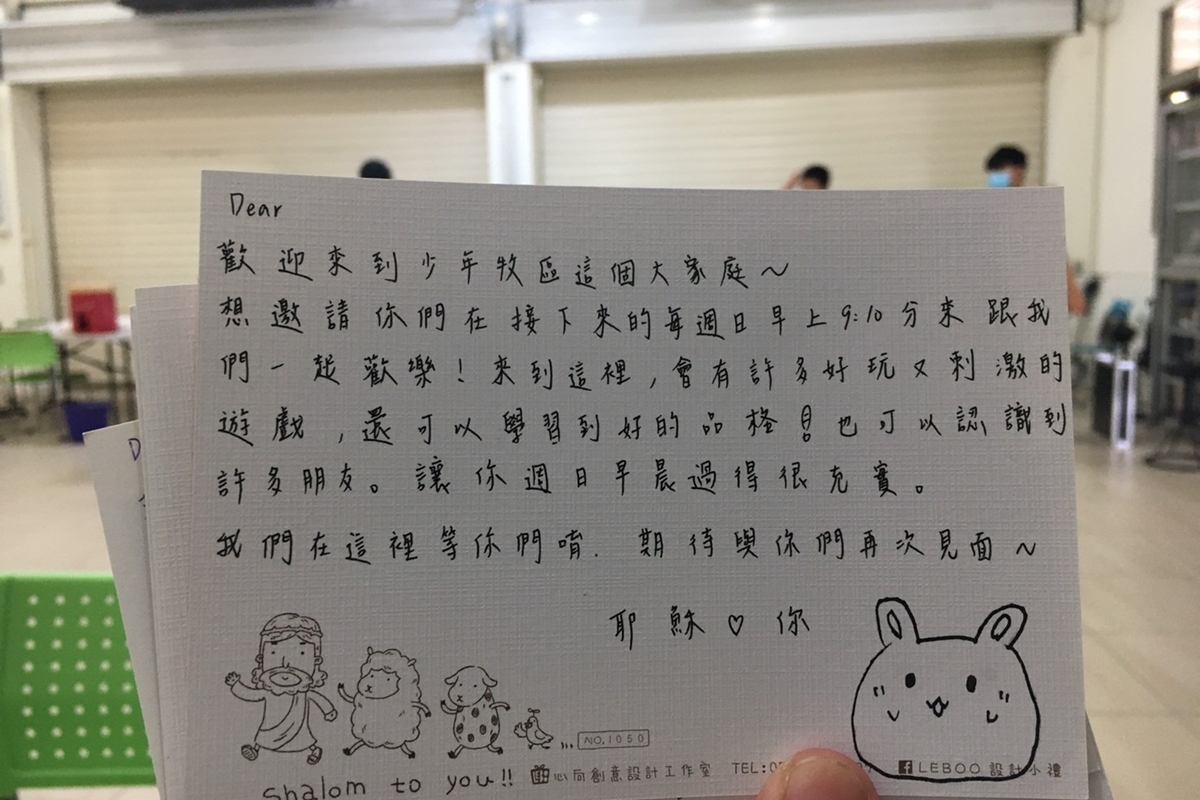 Dear
歡迎來到少年牧區這個大家庭~
想邀請你們在接下來的每週日早上9:10分來跟我
們一起歡樂!來到這裡,會有許多好玩又刺激的
遊戲,還可以學習到好的品格 也可以認識到
許多朋友。讓你週日早晨過得很充實。
我們在這裡等你們唷. 期待與你們再次見面~
耶穌♡你
NO.1050
Shalom to you!!
心向創意設計工作室 TEL:0 LEBOO設計小禮